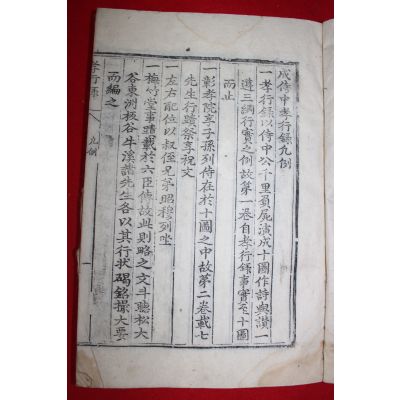 成侍中孝行錄凡例
一孝行錄以侍中公千里負屍演成十圖作詩與讚一
遵三綱行實之例故第一卷自孝行錄事實至十圖
而止
一彰孝院享子孫列侍在於十圖之中故第二卷載七
先生行蹟祭享祝文
一左右配位以叔侄兄弟昭穆列坐
一梅竹堂事蹟載於六臣傳故此則略之文斗聽松大
谷東洲板谷牛溪諸先生各以其行狀碣銘撮大要
而編之
孝行錄 凡例